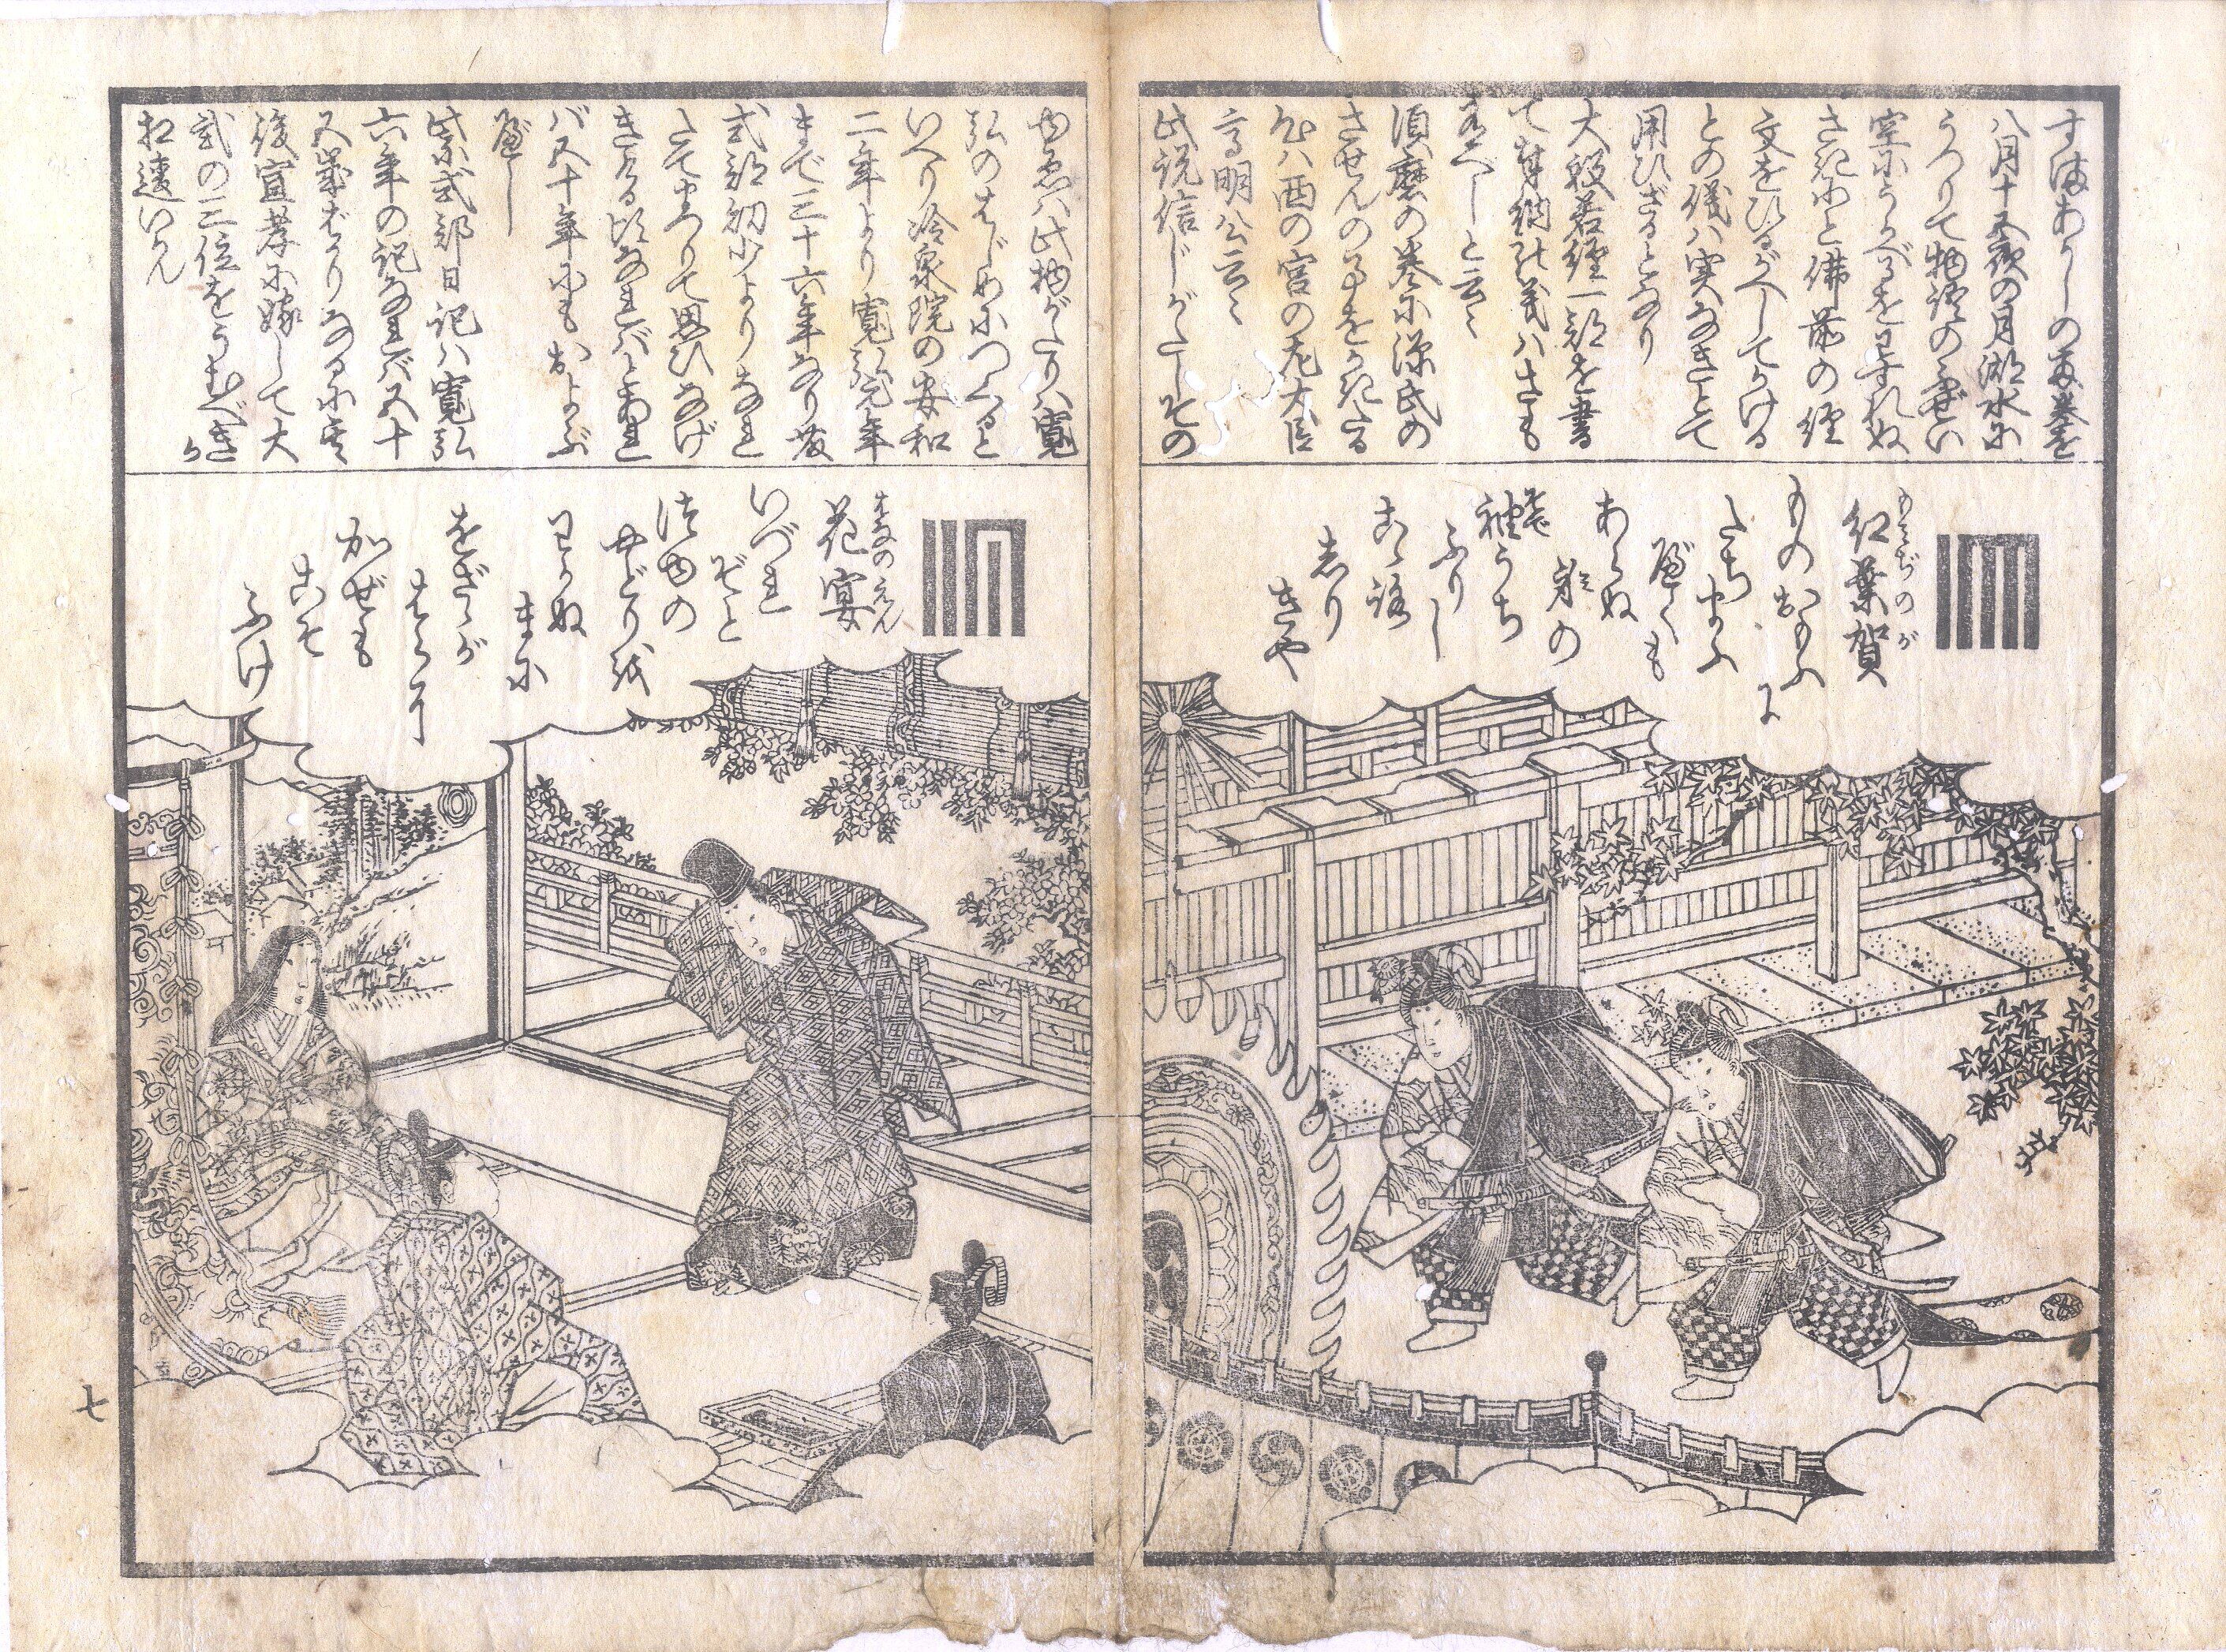 すまあかしの両巻を
八月十五夜の月湖水に
うつりて物語のふぜい
空にうかべるをわすれぬ
さきにと佛前の経
文をひるがへしてかける
との儀ハ実なきとて
用ひざるとなり
大般若経一部を書
て奉納の義ハさも
有べしと云々
須磨の巻に源氏の
させんの事をかきたる
ハ西の宮の左大臣
高明公云々
此説信じがたしその
ゆゑハ此物がたりハ寛
弘のはじめにつくると
いへり冷泉院の安和
二年より寛弘元年
まで三十六年なり紫
式部幼少よりなれ
たてまつりて思ひなげ
きける比なれバとあれ
バ五十年にもおよぶ
べし
紫式部日記ハ寛弘
六年の記なれバ五十
五歳ばかりなるに其
後宣孝に嫁して大
弐の三位をうむべき
か
相違いかん
紅葉賀
もみぢのが
ものおもふ
に
たちまふ
べくも
あらぬ
身の
袖うち
ふりし
こゝろ
しり
きや
花宴
はなのえん
いづれ
ぞと
露の
やどりを
わかぬ
まに
をざゝが
はらに
かぜも
こそ
ふけ
七